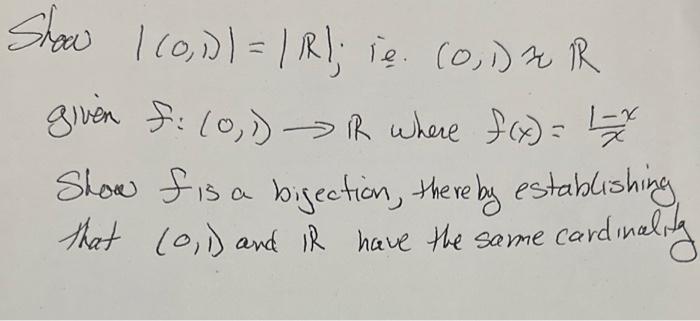 Show |(0,1)| = |ℝ|; ie. (0,1) ≈ ℝ
given f: (0,1) → ℝ where f(x) = (1-x)/x
Show f is a bijection, thereby establishing
that (0,1) and ℝ have the same cardinality